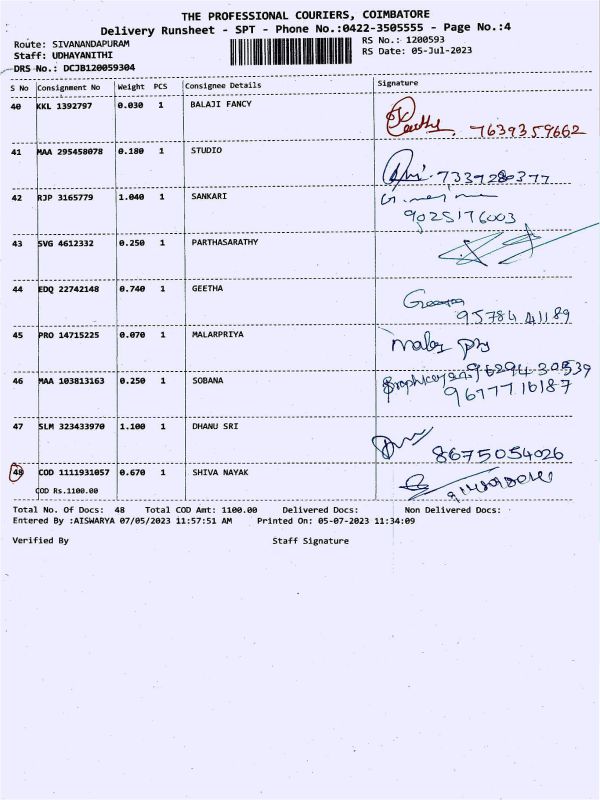 THE PROFESSIONAL COURIERS, COIMBATORE
Delivery Runsheet - SPT - Phone No.:0422-3505555 - Page No.:4
Route: SIVANANDAPURAM
RS No.: 1200593
Staff: UDHAYANITHI
RS Date: 05-Jul-2023
DRS No.: DCJB120059304
S No Consignment No Weight PCS Consignee Details Signature
40 KKL 1392797 0.030 1 BALAJI FANCY
7639359662
41 MAA 295458078 0.180 1 STUDIO
7339280377
42 RJP 3165779 1.040 1 SANKARI
9025176003
43 SVG 4612332 0.250 1 PARTHASARATHY
44 EDQ 22742148 0.740 1 GEETHA
Geetha
95784 41189
45 PRO 14715225 0.070 1 MALARPRIYA
46 MAA 103813163 0.250 1 SOBANA
96294 30539
9677716187
47 SLM 323433970 1.100 1 DHANU SRI
8675054026
48 COD 1111931057 0.670 1 SHIVA NAYAK
COD Rs.1100.00
Total No. Of Docs: 48 Total COD Amt: 1100.00 Delivered Docs: Non Delivered Docs:
Entered By :AISWARYA 07/05/2023 11:57:51 AM Printed On: 05-07-2023 11:34:09
Verified By Staff Signature